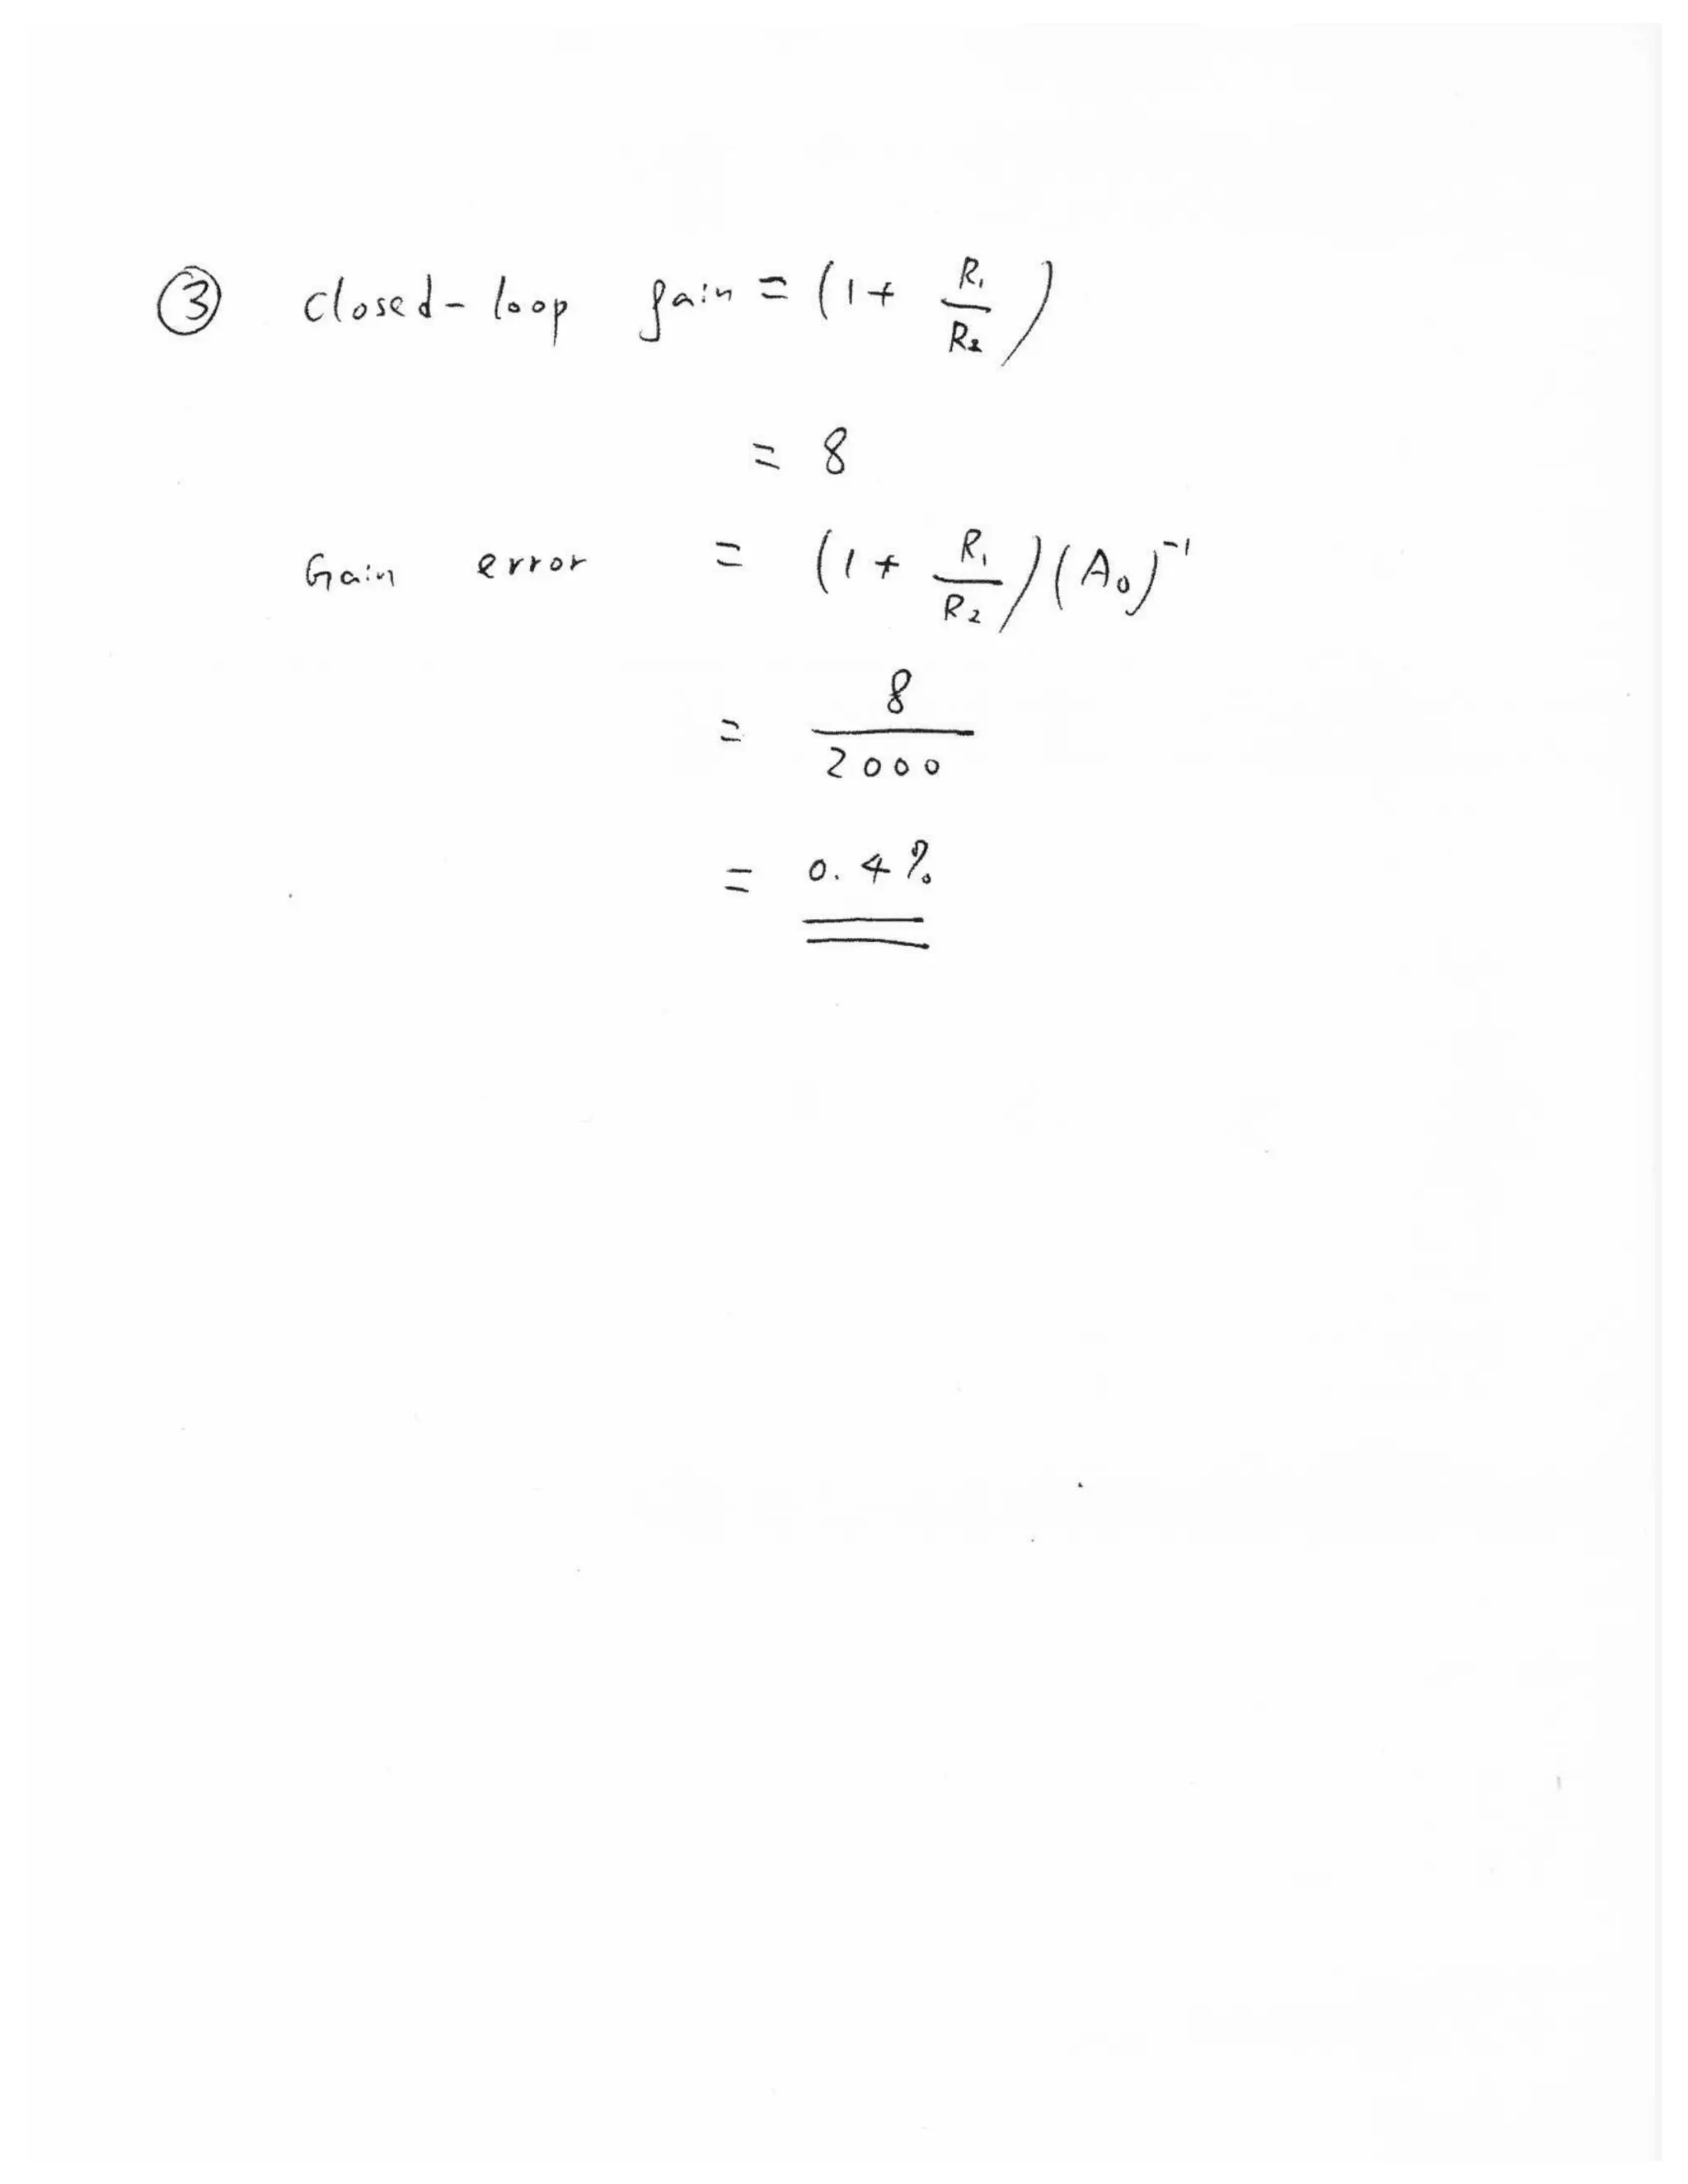 ③ Closed-loop gain = (1 + R₁/R₂)
= 8
Gain error = (1 + R₁/R₂)(A₀)⁻¹
= 8/2000
= 0.4%